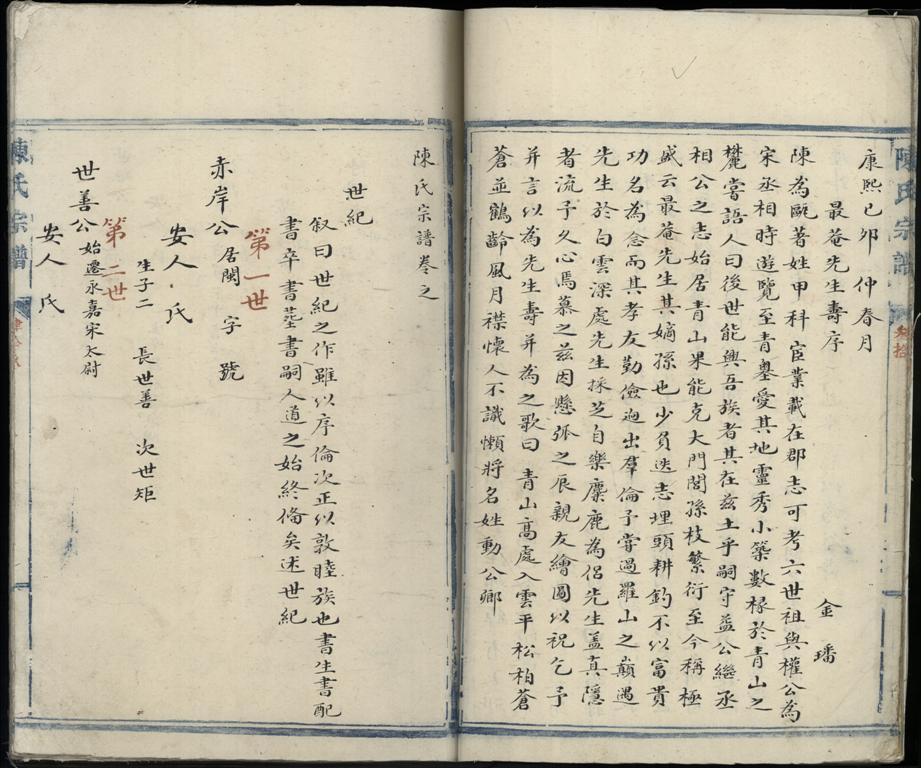 康熙己卯 仲春月
最菴先生壽序
金璠
陳為甌著姓甲科宦業載在郡志可考六世祖與權公為
宋丞相時遊覽至青壘愛其地靈秀小築數椽於青山之
麓嘗語人曰後世能興吾族者其在兹土乎嗣守益公繼丞
相公之志始居青山果能克大門閭孫枝繁衍至今稱極
盛云最菴先生其嫡孫也少負迭志埋頭耕釣不以富貴
功名為念而其孝友勤儉迥出羣倫予嘗過羅山之巔遇
先生於白雲深處先生採芝自樂麋鹿為侶先生盖真隱
者流予久心焉慕之兹因懸弧之辰親友繪圖以祝乞予
并言以為先生壽并為之歌曰 青山高處入雲平松柏蒼
蒼並鶴齡風月襟懷人不識懶將名姓動公卿
陳氏宗譜
陳氏宗譜卷之
世紀
叙曰世紀之作雖以序倫次正以敦睦族也書生書配
書卒書塟書嗣人道之始終俻矣述世紀
第一世
赤岸公 居閩 字 號
安人 氏
生子二 長世善 次世矩
第二世
世善公 始遷永嘉宋太尉
安人 氏
陳氏宗譜